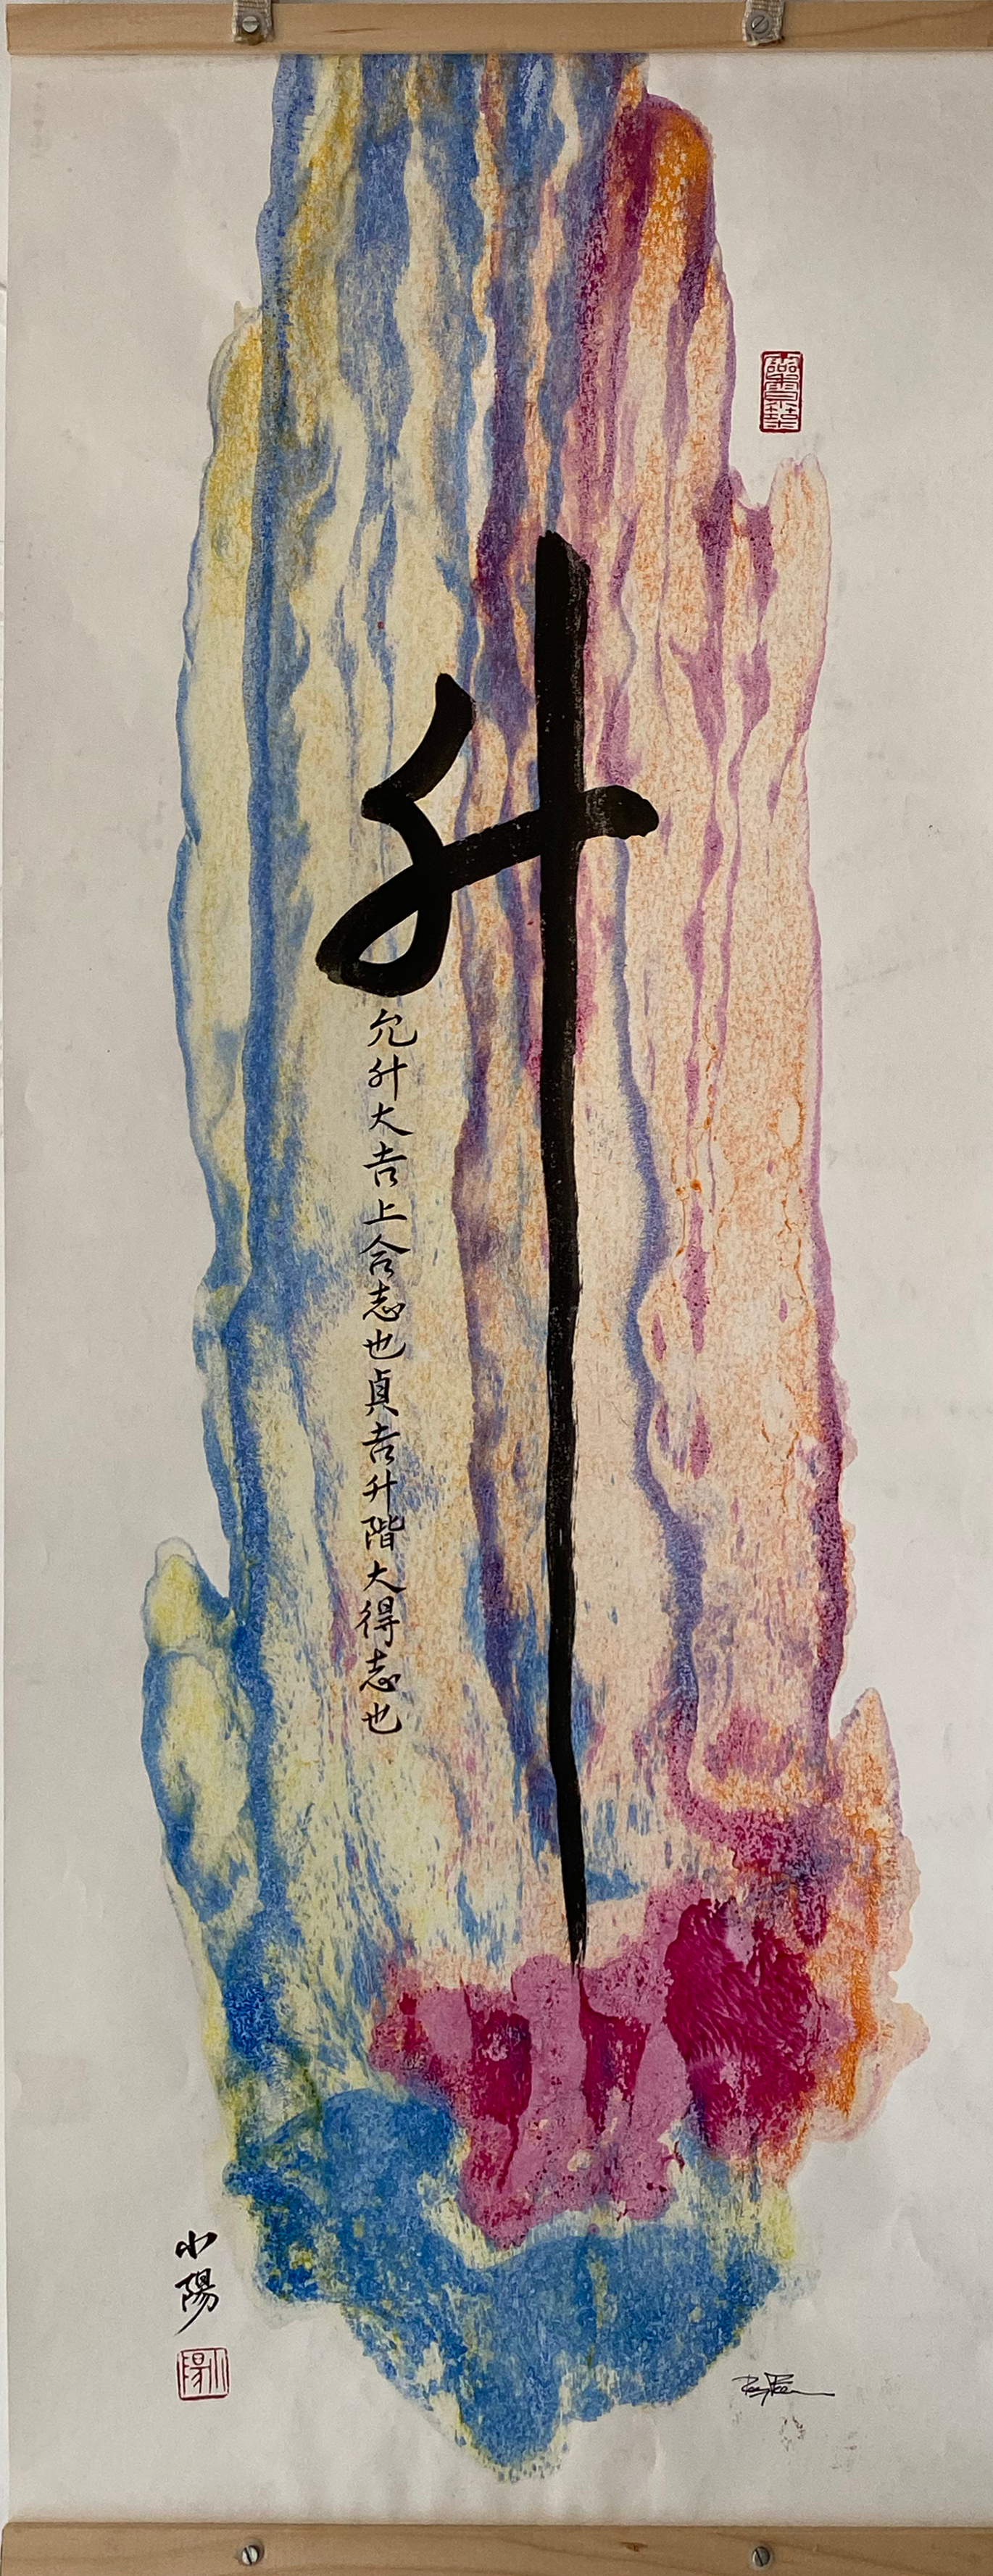 升
允升大吉上合志也貞吉升階大得志也
小陽
小陽